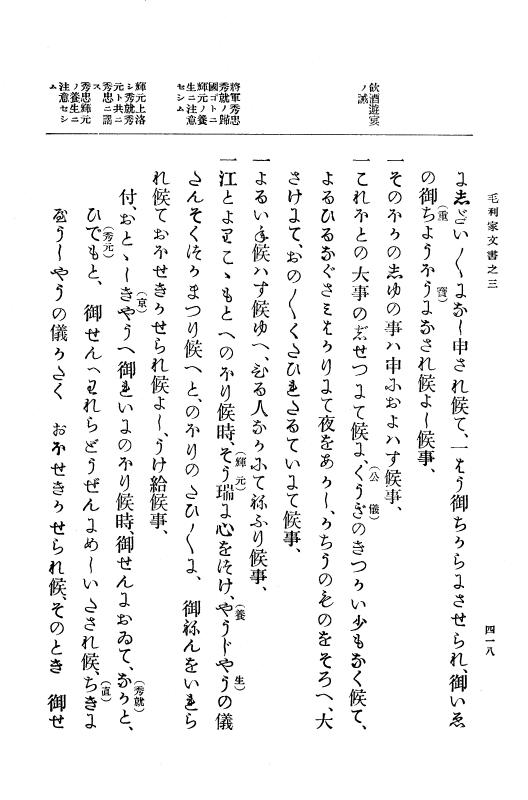 毛利家文書之三
四一八
飲酒遊宴
ノ誡
將軍秀忠
秀就ノ歸
國ゴトニ
輝元ノ養
生ニ注意
セシム
輝元上洛
シ秀就秀
元ト共ニ
秀忠ニ謁
ス
秀忠輝元
ノ養生ニ
注意セシ
ム
にしざい〱になし申され候て、一はう御ちからにさせられ、御いゑ
の御ちようほうになされ候よし候事、
(重)(寶)
一そのほかのしゆの事ハ申におよハす候事、
一これほとの大事のじせつにて候に、くうぎのきつかい少もなく候て、
(公儀)
よるひるなぐさミはかりにて夜をあかし、かちうのものをそろへ、大
さけにて、おの〱くたひれたるていにて候事、
一よるいね候ハす候ゆへ、ひる人なかにてねふり候事、
一江とよりこゝもとへのほり候時、そう瑞に心をつけ、やうじやうの儀
(輝元)(養生)
さんそくつかまつり候へと、のほりのたひ〱に、御ねんをいれら
れ候ておほせきかせられ候よし、うけ給候事、
付、おとゝしきやうへ御れいにのほり候時、御せんにおゐて、なかと、
(京)(秀就)
ひでもと、御せんへわれらどうぜんにめしいたされ候、ちきに
(秀元)(直)
うしやうの儀かたく おほせきかせられ候、そのとき 御せ